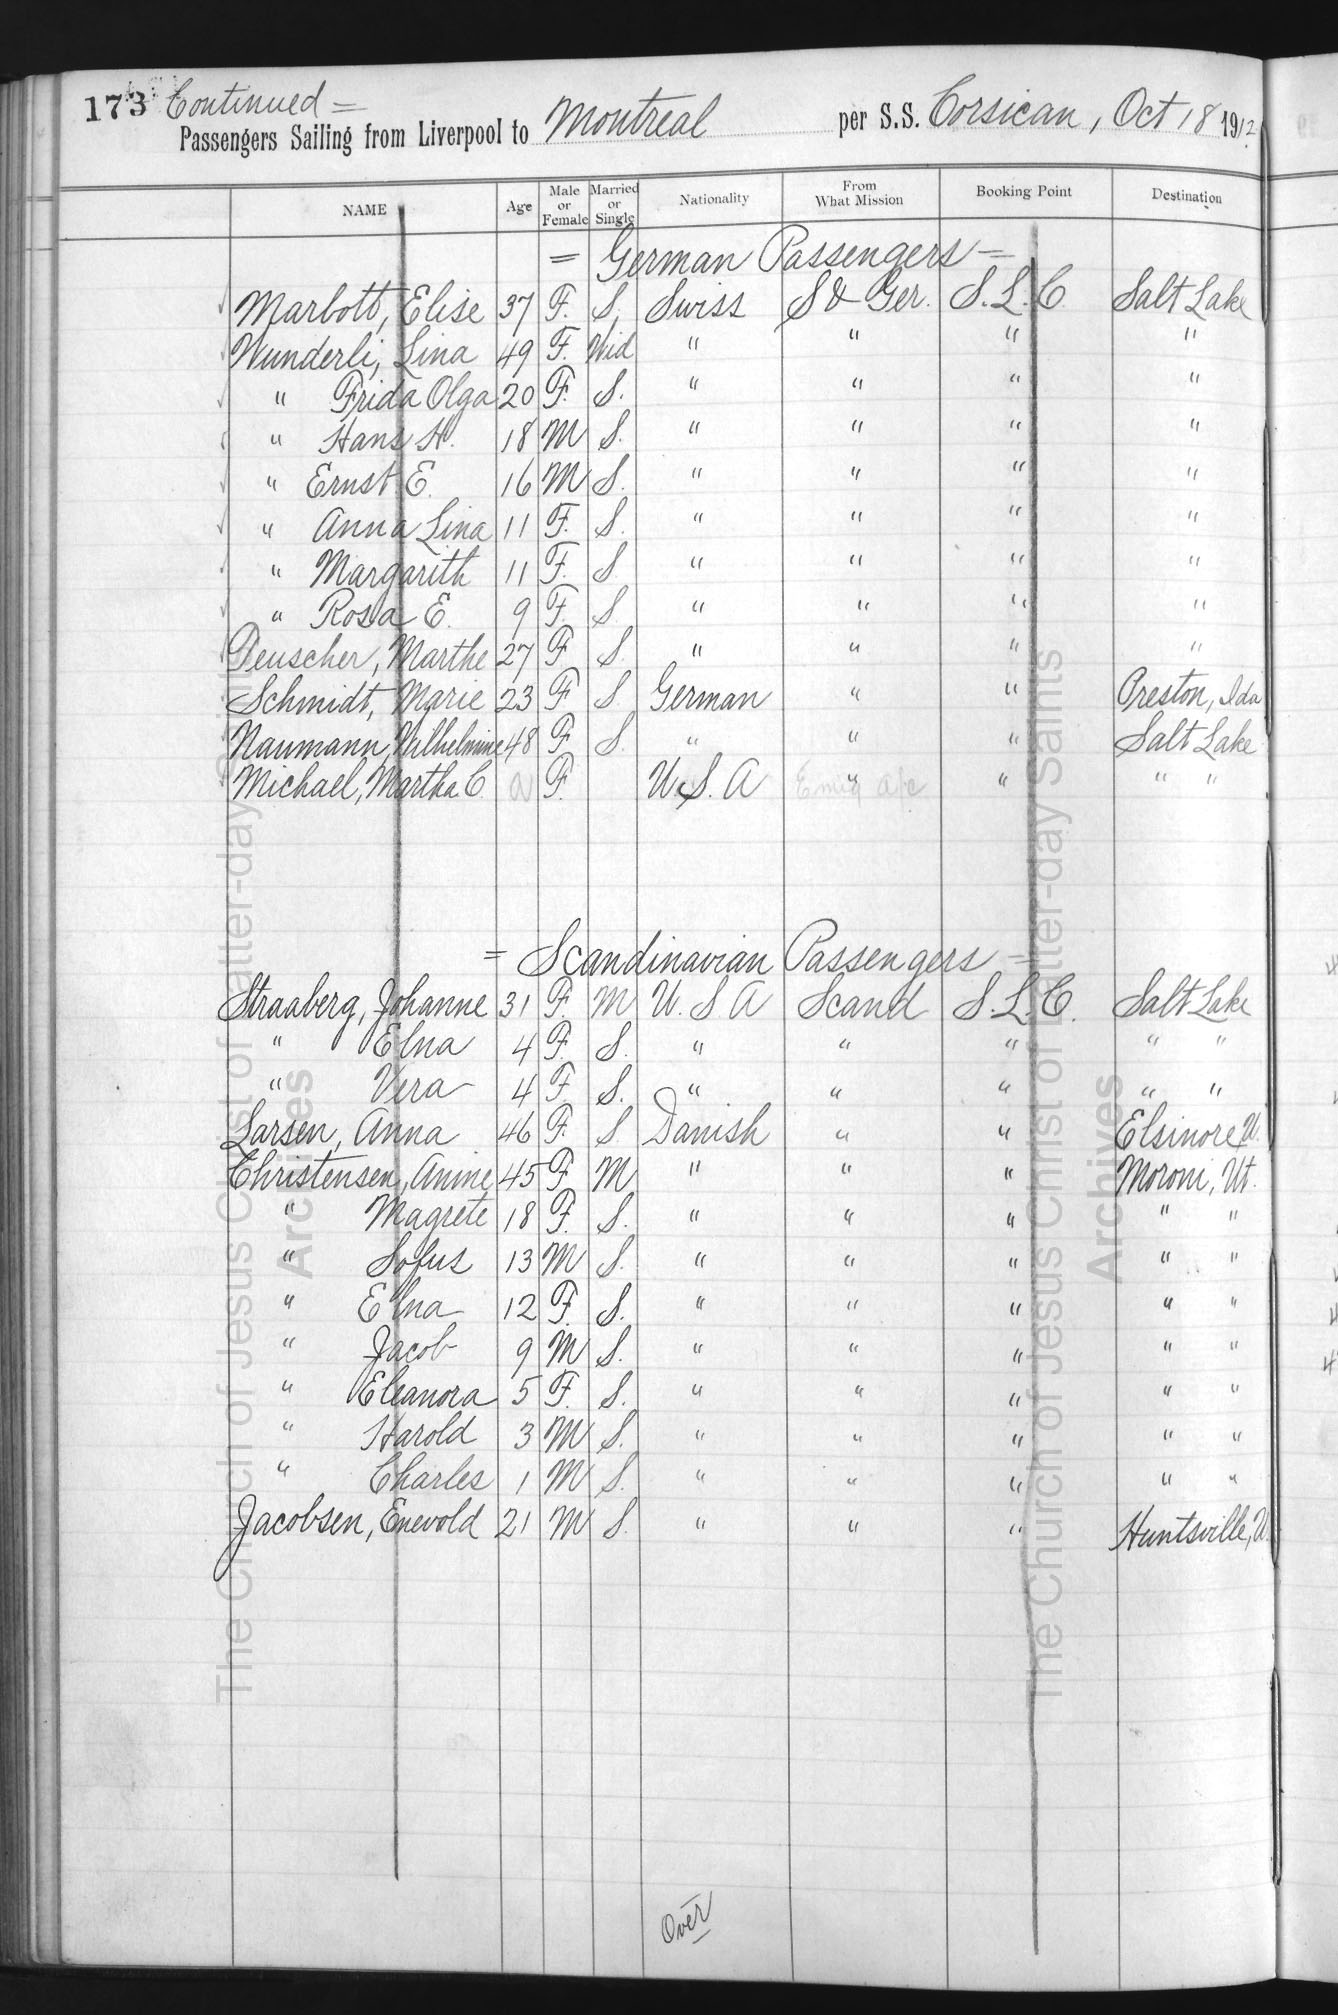 173 Continued =
Passengers Sailing from Liverpool to Montreal per S.S. Corsican, Oct 18 1912
NAME Age Male or Female Married or Single Nationality From What Mission Booking Point Destination
= German Passengers =
Marbott, Elise 37 F. S. Swiss S & Ger. S. L. C. Salt Lake
Wunderli, Lina 49 F. Wid " " " "
" Frida Olga 20 F. S. " " " "
" Hans H. 18 M S. " " " "
" Ernst E. 16 M S. " " " "
" Anna Lina 11 F. S. " " " "
" Margarith 11 F. S " " " "
" Rosa E. 9 F. S. " " " "
Deuscher, Marthe 27 F S. " " " "
Schmidt, Marie 23 F S. German " " Preston, Ida
Naumann, Wilhelmine 48 F S. " " " Salt Lake
Michael, Martha C. a F. U. S. A " Emig a/c " " "
= Scandinavian Passengers =
Straaberg, Johanne 31 F. M U. S A Scand S. L. C. Salt Lake
" Elna 4 F. S. " " " " "
" Vera 4 F. S. " " " " "
Larsen, Anna 46 F. S. Danish " " Elsinore, U.
Christensen, Anine 45 F M " " " Moroni, Ut.
" Magrete 18 F. S. " " " " "
" Sofus 13 M S. " " " " "
" Elna 12 F. S. " " " " "
" Jacob 9 M S. " " " " "
" Eleanora 5 F. S. " " " " "
" Harold 3 M S. " " " " "
" Charles 1 M S. " " " " "
Jacobsen, Enevold 21 M S. " " " Huntsville, U.
Over
The Church of Jesus Christ of Latter-day Saints
Archives
The Church of Jesus Christ of Latter-day Saints
Archives